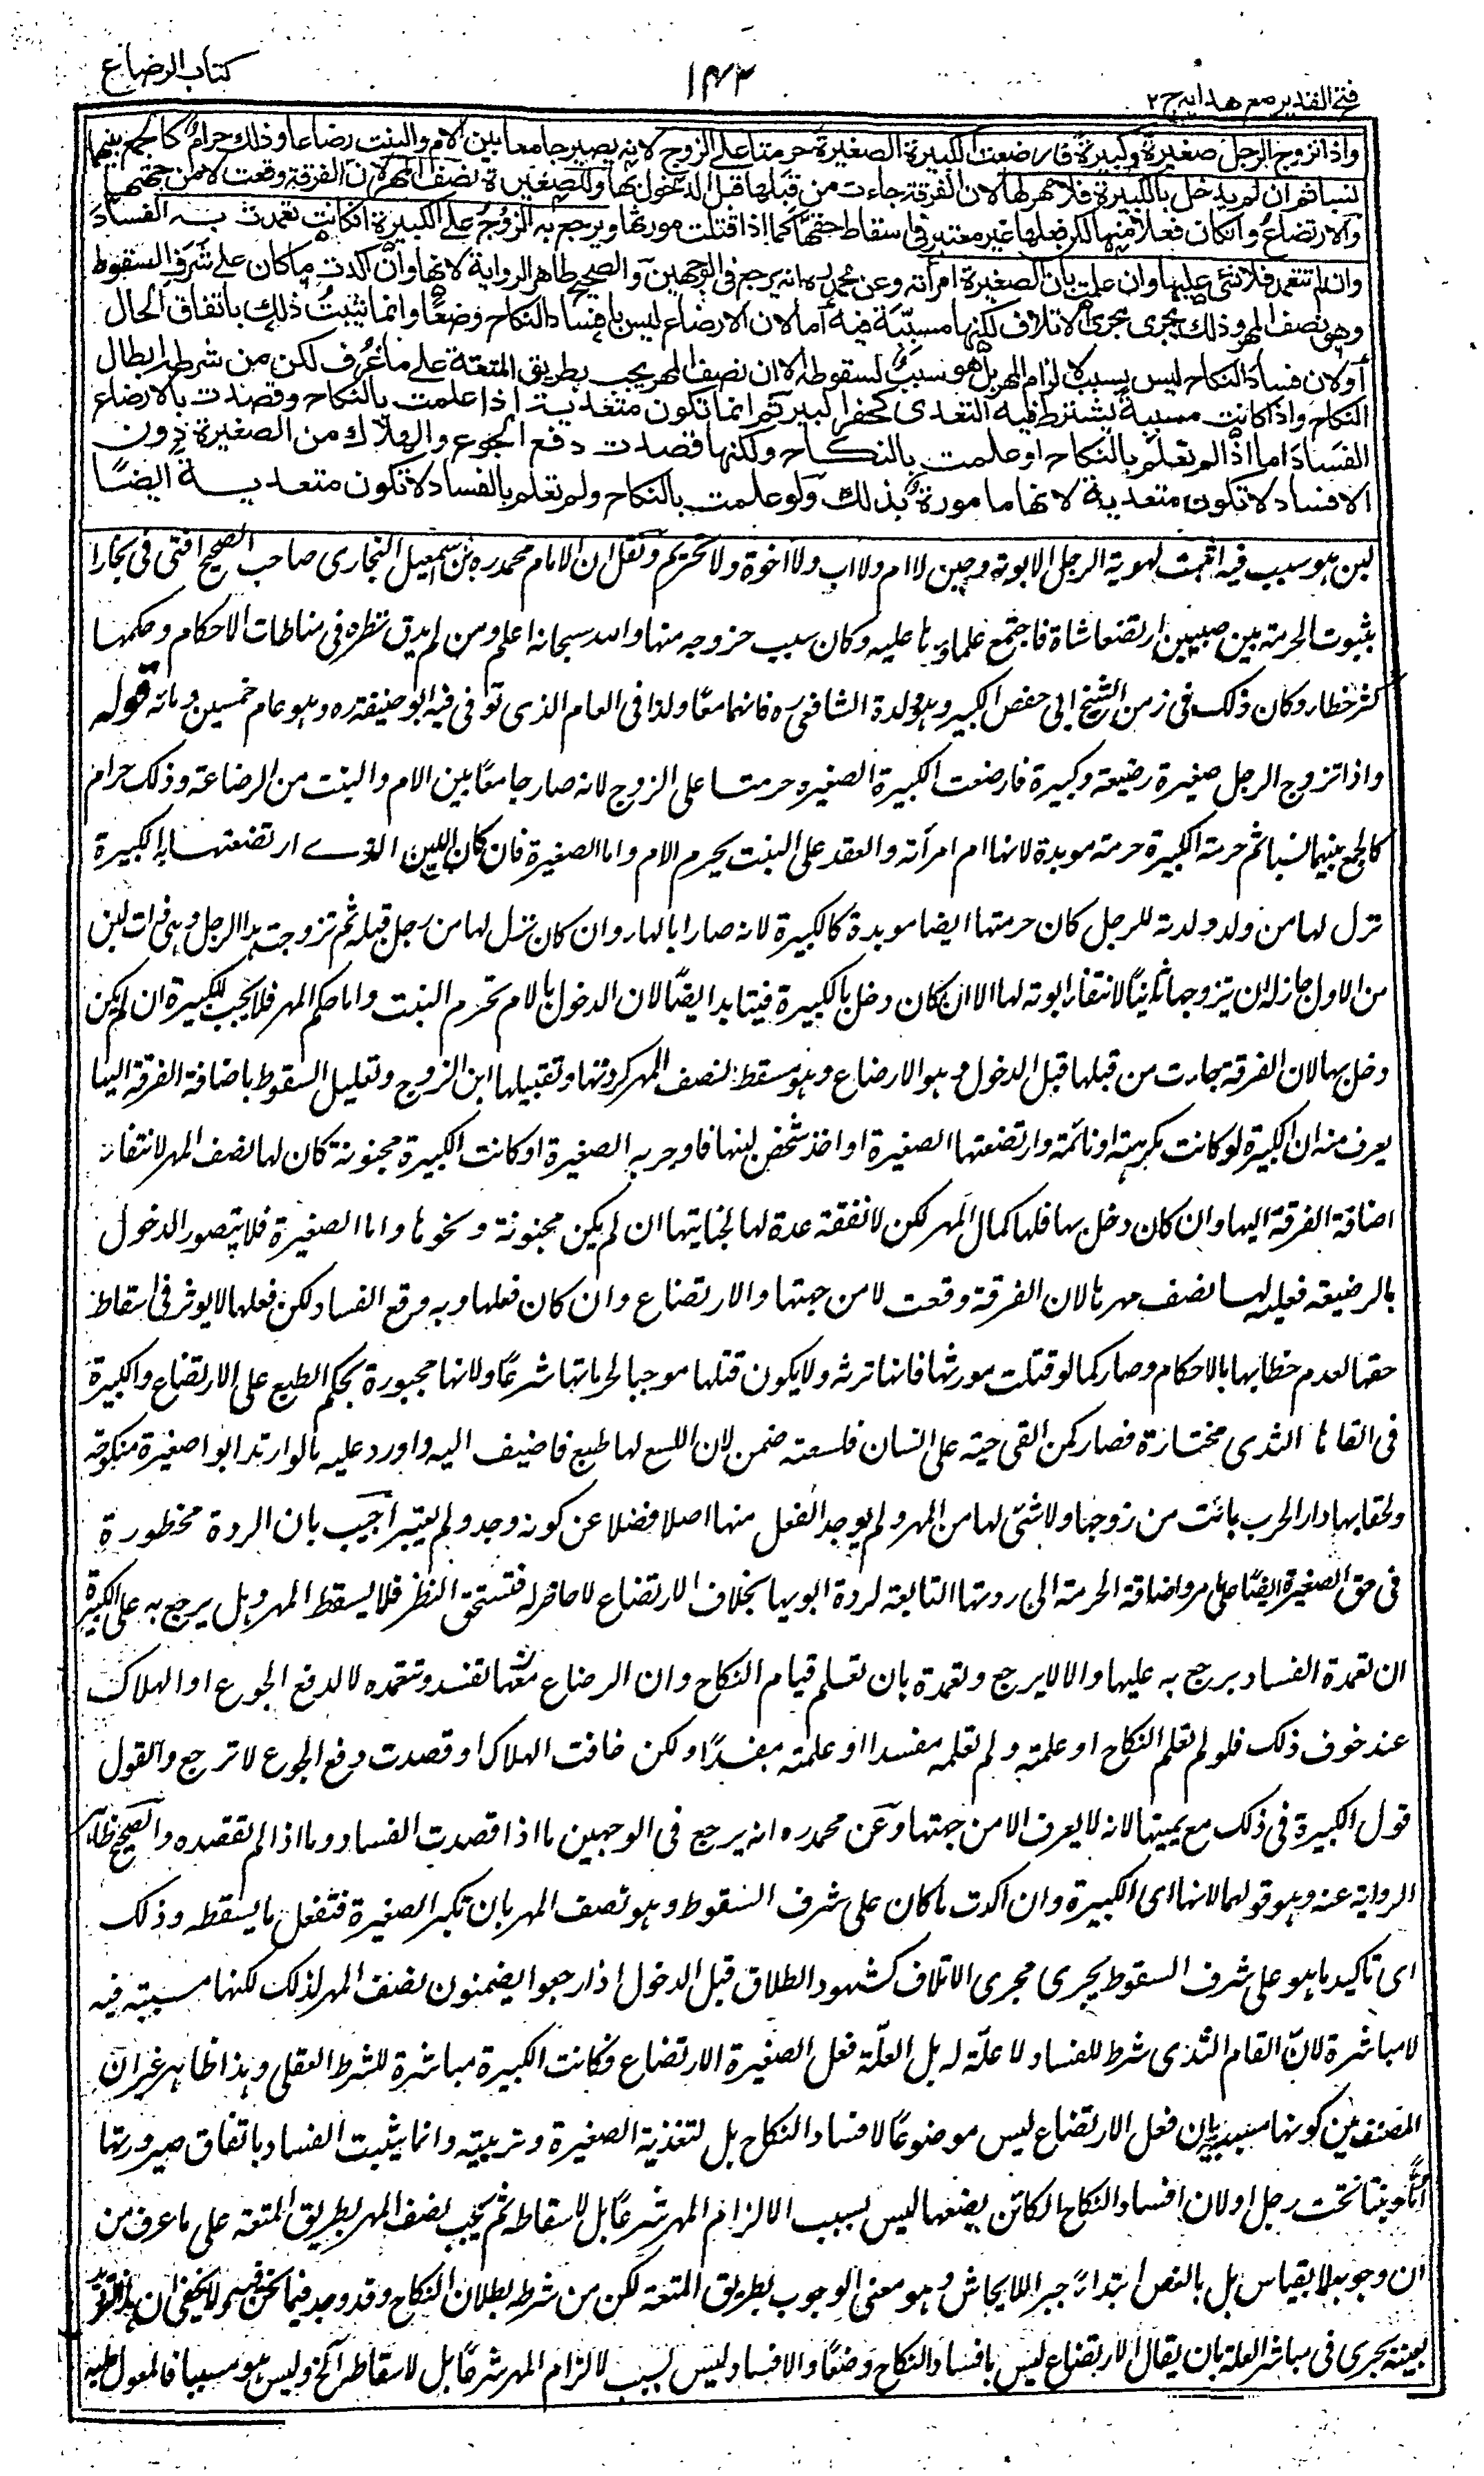 فتح القدير مع هدايه ج ٢
١٤٣
كتاب الرضاع
واذا تزوج الرجل صغيرة وكبيرة فارضعت الكبيرة الصغيرة حرمتا على الزوج لانه يصير جامعا بين الام والبنت رضاعا وذلك حرام كالجمع بينهما
نسبا ثم ان لم يدخل بالكبيرة فلا مهر لها لان الفرقة جاءت من قبلها قبل الدخول بها وللصغيرة نصف المهر لان الفرقة وقعت لا من جهتها
والارتضاع وانكان فعلا منها لكن فعلها غير معتبر في اسقاط حقها كما اذا قتلت مورثها ويرجع به الزوج على الكبيرة انكانت تعمدت به الفساد
وان لم تتعمد فلا شئ عليها وان علمت بان الصغيرة امرأته وعن محمد ره انه يرجع في الوجهين والصحيح ظاهر الرواية لانها وان اكدت ما كان على شرف السقوط
وهو نصف المهر وذلك يجرى مجرى الاتلاف لكنها مسببة فيه أما لان الارضاع ليس بافساد النكاح وضعا وانما يثبت ذلك باتفاق الحال
أو لان فساد النكاح ليس بسبب لالزام المهر بل هو سبب لسقوطه الا ان نصف المهر يجب بطريق المتعة على ما عرف لكن من شرطه ابطال
النكاح واذا كانت مسببة يشترط فيه التعدى كحفر البير ثم انما تكون متعدية اذا علمت بالنكاح وقصدت بالارضاع
الفساد اما اذا لم تعلم بالنكاح او علمت بالنكاح ولكنها قصدت دفع الجوع والهلاك من الصغيرة دون
الافساد لا تكون متعدية لانها مامورة بذلك ولو علمت بالنكاح ولم تعلم بالفساد لا تكون متعدية ايضا
لبن هو سبب فيه اثبت لهوية الرجل الابوة وحين لا ام ولا اب ولا اخوة ولا تحريم ونقل ان الامام محمد ره بن اسمعيل البخارى صاحب الصحيح افتى في بخارا
بثبوت الحرمة بين صبيين ارتضعا شاة فاجتمع علماؤها عليه وكان سبب خروجه منها والله سبحانه اعلم ومن لم يدق نظره في مناطات الاحكام وحكمها
كثر خطاؤه وكان ذلك في زمن الشيخ ابى حفص الكبير ومولده مولد الشافعى ره فانهما معا ولدا في العام الذى توفى فيه ابو حنيفة ره وهو عام خمسين ومائه قوله
واذا تزوج الرجل صغيرة رضيعة وكبيرة فارضعت الكبيرة الصغيره حرمتا على الزوج لانه صار جامعا بين الام والبنت من الرضاعة وذلك حرام
كالجمع بينهما نسبا ثم حرمة الكبيرة حرمة موبدة لانها ام امرأته والعقد على البنت يحرم الام واما الصغيرة فان كان اللبن الذے ارتضعتها به الكبيرة
نزل لها من ولد ولدته للرجل كان حرمتها ايضا موبدة كالكبيرة لانه صار ابا لها وان كان نزل لها من رجل قبله ثم تزوجت هذا الرجل وهى ذات لبن
من الاول جاز له ان يتزوجها ثانيا لانتفاء ابوته لها الا ان كان دخل بالكبيرة فيتابد ايضا لان الدخول بالام تحرم البنت واما حكم المهر فلا يجب للكبيرة ان لم يكن
دخل بها لان الفرقة جاءت من قبلها قبل الدخول وهو الارضاع وهو مسقط لنصف المهر كردتها وتقبيلها ابن الزوج وتعليل السقوط باضافة الفرقة اليها
يعرف منه ان الكبيرة لو كانت مكرهة او نائمة وارتضعتها الصغيرة او اخذ شخص لبنها فاوجر به الصغيرة او كانت الكبيرة مجنونة كان لها نصف المهر لانتفاء
اضافة الفرقة اليها وان كان دخل بها فلها كمال المهر لكن لا نفقة عدة لها لجنايتها ان لم يكن مجنونة ونحوها واما الصغيرة فلا يتصور الدخول
بالرضيعة فعليه لها نصف مهرها لان الفرقة وقعت لا من جهتها والارتضاع وان كان فعلها وبه وقع الفساد لكن فعلها لا يوثر في اسقاط
حقها لعدم خطابها بالاحكام وصار كما لو قتلت مورثها فانها ترثه ولا يكون قتلها موجبا لحرمانها شرعا ولانها مجبورة بحكم الطبع على الارتضاع والكبيرة
في القائها الثدى مختارة فصار كمن القى حية على انسان فلسعته ضمن لان اللسع لها طبع فاضيف اليه واورد عليه ما لو ارتد ابوا صغيرة منكوحة
ولحقا بها دار الحرب بانت من زوجها ولا شئى لها من المهر ولم يوجد الفعل منها اصلا فضلا عن كونه وجد ولم يعتبر اجيب بان الردة محظورة
في حق الصغيرة ايضا واضافة الحرمة الى ردتها التابعة لردة ابويها بخلاف الارتضاع لا حاظر له فتستحق النظر فلا يسقط المهر وبل يرجع به على الكبيرة
ان تعمدة الفساد يرجع به عليها والا لا يرجع وتعمدة بان تعلم قيام النكاح وان الرضاع منها مفسد وتتعمده لا لدفع الجوع او الهلاك
عند خوف ذلك فلو لم تعلم النكاح او علمته ولم تعلمه مفسدا او علمته مفسدا ولكن خافت الهلاك او قصدت دفع الجوع لا ترجع والقول
قول الكبيرة في ذلك مع يمينها لانه لا يعرف الا من جهتها وعن محمد ره انه يرجع في الوجهين ما اذا قصدت الفساد وما اذا لم تقصده والصحيح ظاهر
الرواية عنه وهو قولهما لانها اى الكبيرة وان اكدت ما كان على شرف السقوط وهو نصف المهر بان تكبر الصغيرة فتفعل ما يسقطه وذلك
اى تاكيد ما هو على شرف السقوط يجرى مجرى الاتلاف كشهود الطلاق قبل الدخول اذا رجعوا يضمنون نصف المهر لذلك لكنها مسببة فيه
لا مباشرة لان القام الثدى شرط للفساد لا علة له بل العلة فعل الصغيرة الارتضاع فكانت الكبيرة مباشرة للشرط العقلى وهذا ظاهر غير ان
المصنف بين كونها مسببة بان فعل الارتضاع ليس موضوعا لافساد النكاح بل لتغذية الصغيرة وتربيته وانما يثبت الفساد باتفاق صيرورتها
اما وبنتا تحت رجل او لان افساد النكاح الكائن بصنعها ليس بسبب الالزام المهر شرعا بل لاسقاطه ثم يجب نصف المهر بطريق المتعة على ما عرف من
ان وجوبه لا بقياس بل بالنص ابتداء جبرا للايحاش وهو معنى الوجوب بطريق المتعة لكن من شرطه بطلان النكاح وقد وجد فيما نحن فيه ولا يخفى ان هذا
بعينه يجرى في مباشر العلة بان يقال الارتضاع ليس بافساد النكاح وضعا والافساد ليس بسبب لالزام المهر شرعا بل لاسقاطه الخ وليس هو مسببا فالمعول عليه